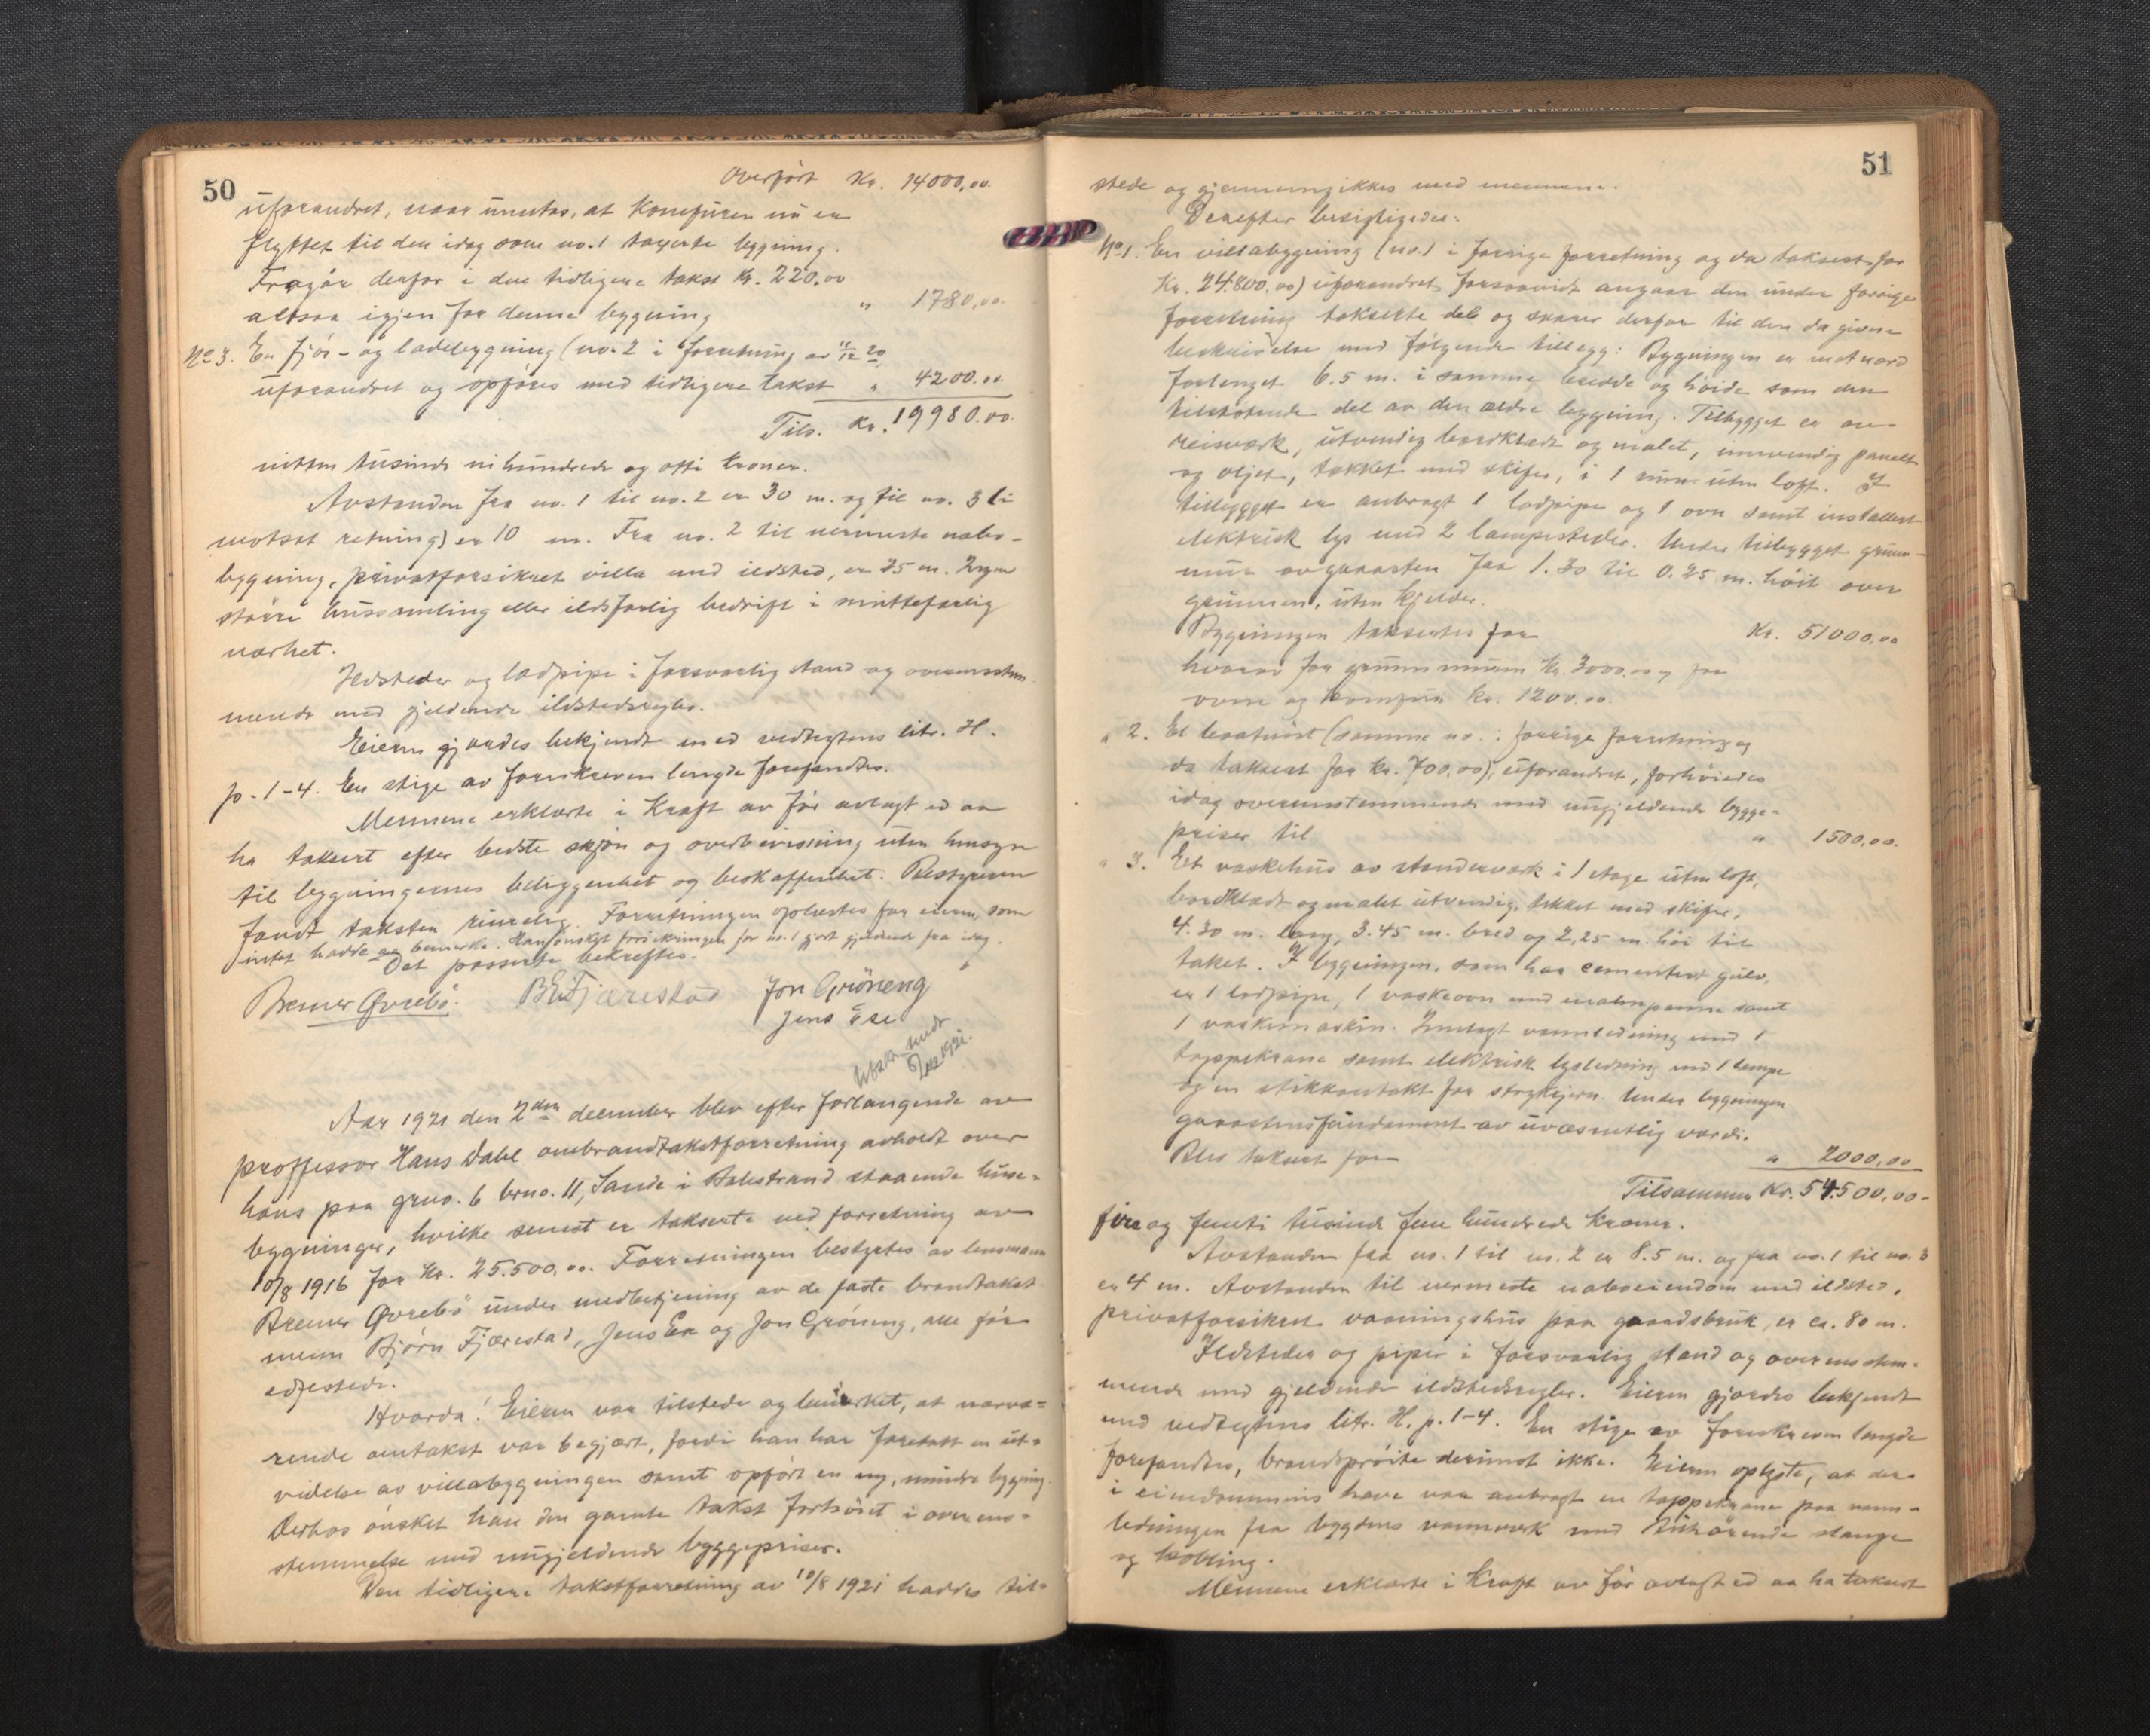 50
Overført Kr. 14000,00.
uforandret, naar undtas, at komfuren nu er
flyttet til den idag som no. 1 takserte bygning.
Fragår derfor i den tidligere takst Kr. 220.00
altsaa igjen for denne bygning " 1780,00.
No 3. En fjös- og ladebygning (no. 2 i forretning av 11/12 20,
uforandret og opföres med tidligere takst " 4200.00
Tils. Kr. 19980.00.
nitten tusinde nihundrede og otti kroner.
Avstanden fra no. 1 til no. 2 er 30 m. og til no. 3 (i
motsat retning) er 10 m. Fra no. 2 til nermeste nabo-
bygning, privatforsikret villa med ildsted, er 25 m. Ingen
större hussamling eller ildsfarlig bedrift i smittefarlig
nærhet.
Ildsteder og ladpipe i forsvarlig stand og overensstem-
mende med gjeldende ildstedsregler.
Eieren gjordes bekjendt med vedtegtens litr. H.
p. 1-4. En stige av foreskreven lengde forefandtes.
Mennene erklærte i kraft av för avlagt ed aa
ha taksert efter bedste skjön og overbevisning uten hensyn
til bygningernes beliggenhet og beskaffenhet. Bestyreren
fandt taksten rimelig. Forretningen oplæstes for eieren, som
intet hadde aa bemerke. Han önsket forsikringen for no. 1 gjort gjeldende fra idag.
Det passerte bekreftes.
Bremer Øvrebö. B E Fjærestad Jon Gröneng
Jens Ese
Utskr. sendt
6/12 1921.
Aar 1921 den 2den december blev efter forlangende av
proffessor Hans Dahl ombrandtakstforretning avholdt over
hans paa grno. 6 brno. 11, Sande i Balestrand staaende huse-
bygninger, hvilke senest er takserte ved forretning av
10/8 1916 for Kr. 25.500,00. Forretningen bestyrtes av lensmann
Bremer Øvrebö under medbetjening av de faste brandtakst-
menn Björn Fjærestad, Jens Ese og Jon Gröneng, alle før
edfestede.
Hvorda! Eieren var tilstede og bemerket, at nærvæ-
rende omtakst var begjært, fordi han har foretatt en ut-
videlse av villabygningen samt opfört en ny, mindre bygning.
Derhos önsket han den gamle takst forhöiet i overens-
stemmelse med nugjeldende byggepriser.
Den tidligere takstforretning av 10/8 1921 haddes til-
51
stede og gjennemgikkes med mennene.
Derefter besigtigedes:
No 1. En villabygning (no. 1 i forrige forretning og da taksert for
Kr. 24.800,00) uforandret forsaavidt angaar den under forrige
forretning takserte del og svarer derfor til den da givne
beskrivelse med følgende tillegg: Bygningen er mot nord
forlenget 6.5 m. i samme bredde og höide som den
tilstötende del av den ældre bygning. Tilbygget er av
reisverk, utvendig bordklædt og malet, innvendig panelt
og oljet, tækket med skifer, i 1 rum uten loft. I
tilbygget er anbragt 1 ladpipe og 1 ovn samt installert
elektrisk lys med 2 lampesteder. Under tilbygget grunn-
mur av graasten fra 1.30 til 0.25 m. höit over
grunnen, uten kjelder.
Bygningen taksertes for Kr. 51000.00
hvorav for grunnmuren Kr. 3000.00 og for
ovne og komfur Kr. 1200.00.
" 2. Et baatnöst (samme no. i forrige forretning og
da taksert for Kr. 700,00), uforandret, forhöiedes
idag overensstemmende med nugjeldende bygge-
priser til " 1500,00.
" 3. Et vaskehus av stenderverk i 1 etage uten loft,
bordklædt og malet utvendig, tekket med skifer,
4.30 m. lang, 3.45 m. bred og 2,25 m. höi til
taket. I bygningen, som har cementert gulv,
er 1 ladpipe, 1 vaskeovn med malmpanne samt
1 vaskemaskin. Innlagt vannledning med 1
tappekrane samt elektrisk lysledning med 1 lampe
og en stikkontakt for strykejern. Under bygningen
graastensfundament av uvæsentlig værdi.
Blev taksert for " 2000,00
Tilsammen Kr. 54.500,00-
fire og femti tusind fem hundrede kroner.
Avstanden fra no. 1 til no. 2 er 8.5 m. og fra no. 1 til no. 3
er 4 m. Avstanden til nermeste naboeiendom med ildsted,
privatforsikret vaaningshus paa gaardsbruk, er ca. 80 m.
Ildsteder og piper i forsvarlig stand og overensstem-
mende med gjeldende ildstedsregler. Eieren gjordes bekjendt
med vedtegtens litr. H. p. 1-4. En stige av foreskreven lengde
forefandtes, brandspröite derimot ikke. Eieren oplyste, at der
i eiendommens have var anbragt en tappekrane paa vann-
ledningen fra bygdens vannverk med tilhörende slange
og kobling.
Mennene erklærte i kraft av för avlagt ed aa ha taksert